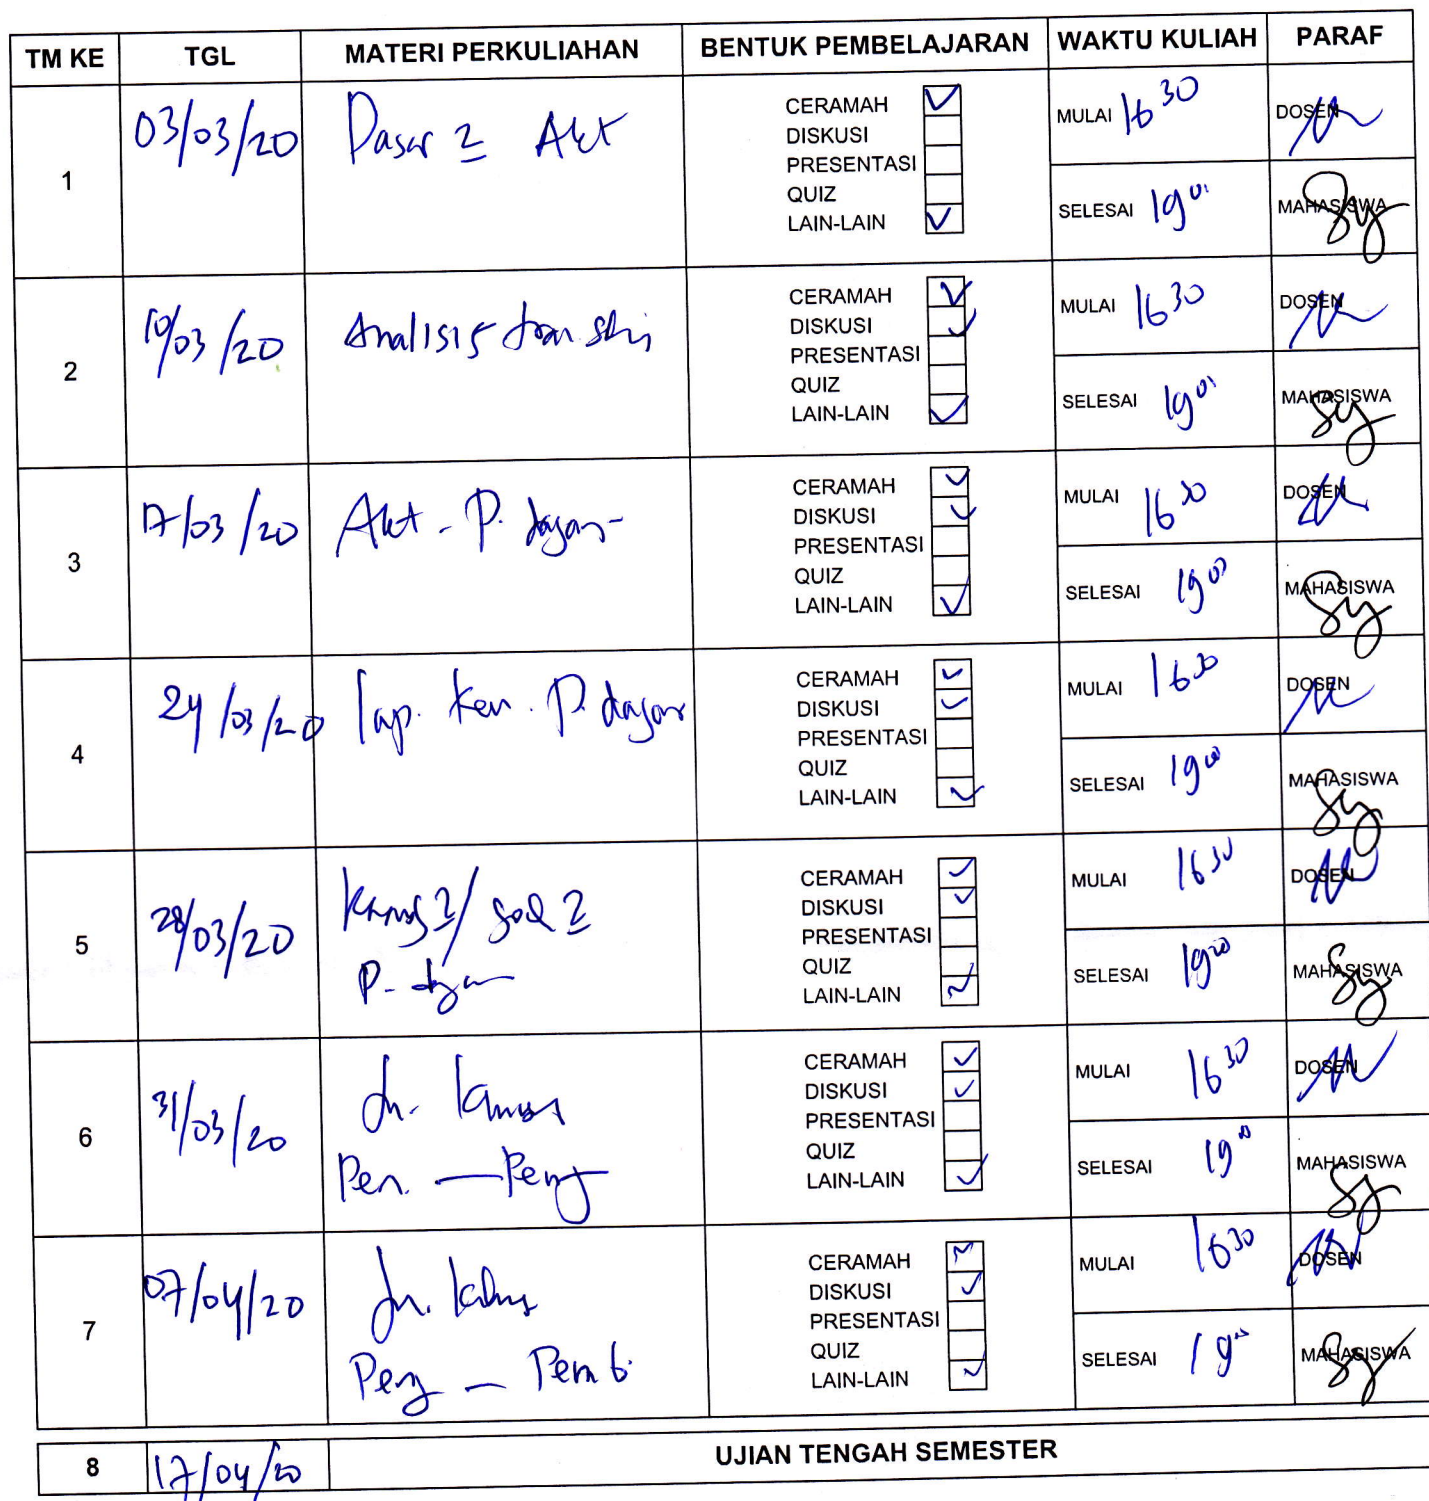 TM KE TGL MATERI PERKULIAHAN BENTUK PEMBELAJARAN WAKTU KULIAH PARAF
1 03/03/20 Dasar 2 Akt
CERAMAH
DISKUSI
PRESENTASI
QUIZ
LAIN-LAIN
MULAI 16 30
SELESAI 19 01
DOSEN
MAHASISWA
2 10/03/20 Analisis
CERAMAH
DISKUSI
PRESENTASI
QUIZ
LAIN-LAIN
MULAI 16 30
SELESAI 19 01
DOSEN
MAHASISWA
3 17/03/20 Akt - P. dagang
CERAMAH
DISKUSI
PRESENTASI
QUIZ
LAIN-LAIN
MULAI 16 30
SELESAI 19 00
DOSEN
MAHASISWA
4 24/03/20 Lap. Keu. P. dagang
CERAMAH
DISKUSI
PRESENTASI
QUIZ
LAIN-LAIN
MULAI 16 30
SELESAI 19 00
DOSEN
MAHASISWA
5 28/03/20 2/ soal 2
P.
CERAMAH
DISKUSI
PRESENTASI
QUIZ
LAIN-LAIN
MULAI 16 30
SELESAI 19 00
DOSEN
MAHASISWA
6 31/03/20 Jn. Khusus
Pen. — Peng
CERAMAH
DISKUSI
PRESENTASI
QUIZ
LAIN-LAIN
MULAI 16 30
SELESAI 19 00
DOSEN
MAHASISWA
7 07/04/20 Jn. Khusus
Peng — Pemb.
CERAMAH
DISKUSI
PRESENTASI
QUIZ
LAIN-LAIN
MULAI 16 30
SELESAI 19 00
DOSEN
MAHASISWA
8 17/04/20 UJIAN TENGAH SEMESTER